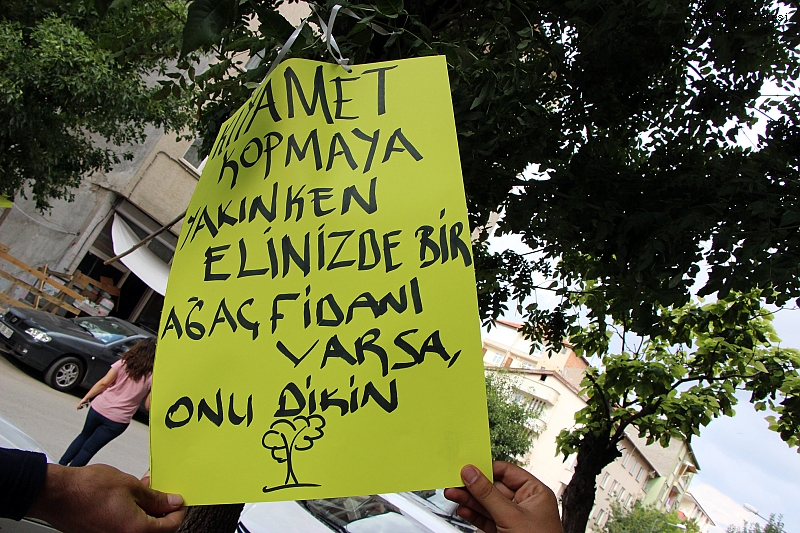 KIYAMET
KOPMAYA
YAKINKEN
ELİNİZDE BİR
AĞAÇ FİDANI
VARSA,
ONU DİKİN